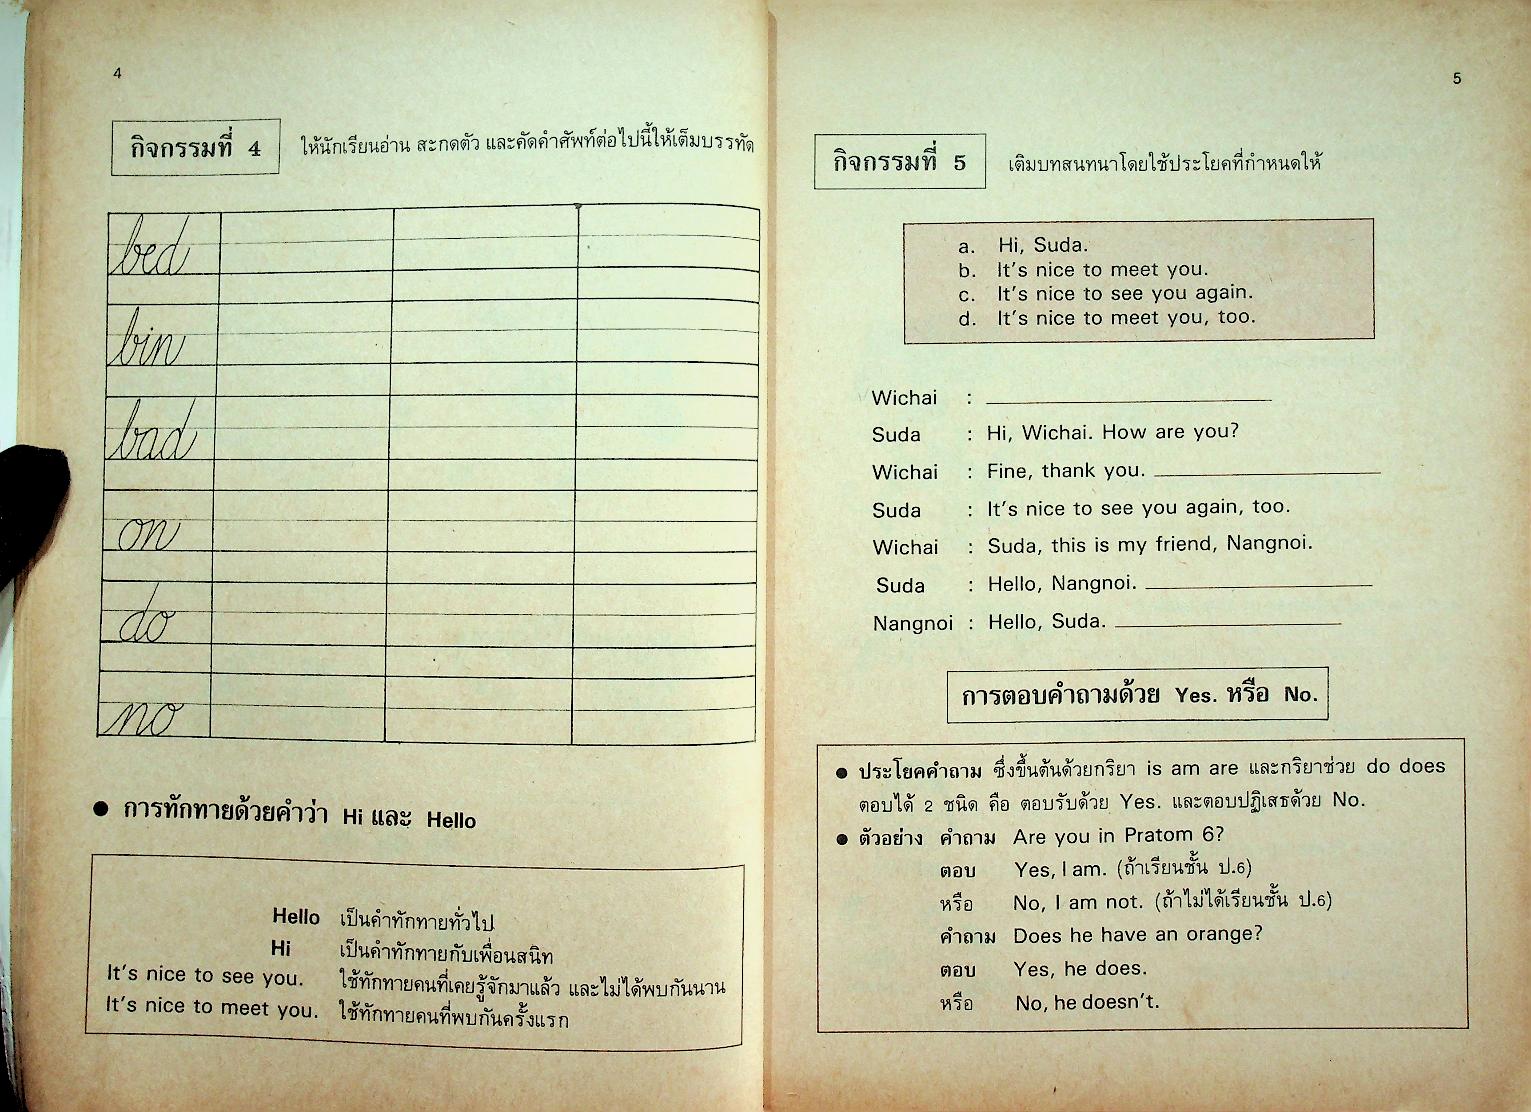 4
กิจกรรมที่ 4 ให้นักเรียนอ่าน สะกดตัว และคัดคำศัพท์ต่อไปนี้ให้เต็มบรรทัด
bed
bin
bad
on
do
no
● การทักทายด้วยคำว่า Hi และ Hello
Hello เป็นคำทักทายทั่วไป
Hi เป็นคำทักทายกับเพื่อนสนิท
It's nice to see you. ใช้ทักทายคนที่เคยรู้จักมาแล้ว และไม่ได้พบกันนาน
It's nice to meet you. ใช้ทักทายคนที่พบกันครั้งแรก
5
กิจกรรมที่ 5 เติมบทสนทนาโดยใช้ประโยคที่กำหนดให้
a. Hi, Suda.
b. It's nice to meet you.
c. It's nice to see you again.
d. It's nice to meet you, too.
Wichai :
Suda : Hi, Wichai. How are you?
Wichai : Fine, thank you.
Suda : It's nice to see you again, too.
Wichai : Suda, this is my friend, Nangnoi.
Suda : Hello, Nangnoi.
Nangnoi : Hello, Suda.
การตอบคำถามด้วย Yes. หรือ No.
● ประโยคคำถาม ซึ่งขึ้นต้นด้วยกริยา is am are และกริยาช่วย do does
ตอบได้ 2 ชนิด คือ ตอบรับด้วย Yes. และตอบปฏิเสธด้วย No.
● ตัวอย่าง คำถาม Are you in Pratom 6?
ตอบ Yes, I am. (ถ้าเรียนชั้น ป.6)
หรือ No, I am not. (ถ้าไม่ได้เรียนชั้น ป.6)
คำถาม Does he have an orange?
ตอบ Yes, he does.
หรือ No, he doesn't.